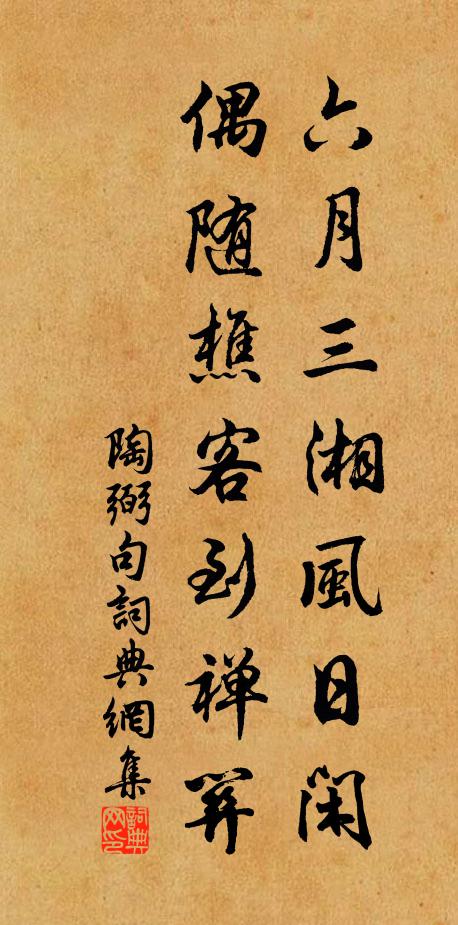 六月三湘風日閑
偶随樵客到禅關
陶弼句詞典網集
詞典网印